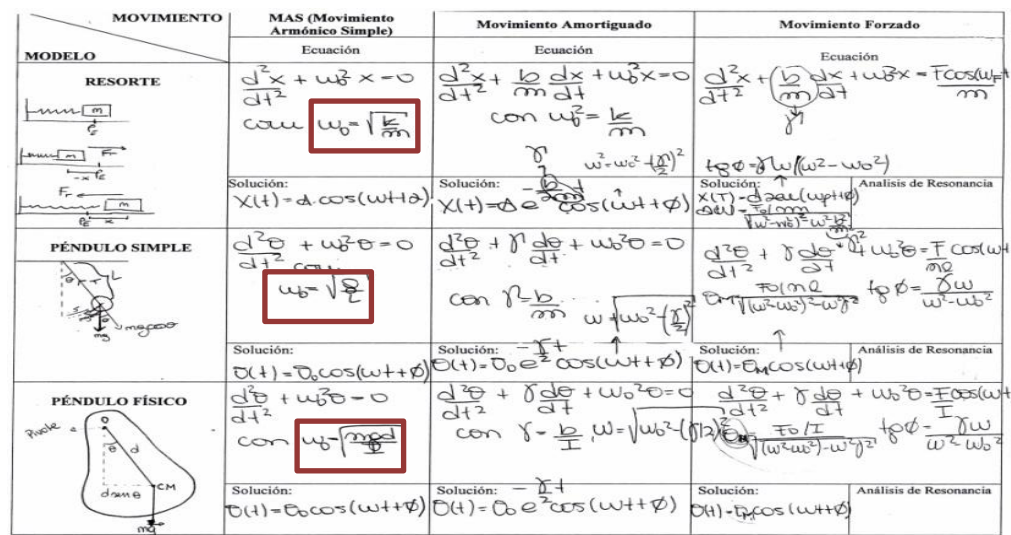 MOVIMIENTO
MODELO
MAS (Movimiento
Armónico Simple)
Movimiento Amortiguado
Movimiento Forzado
Ecuación
Ecuación
Ecuación
RESORTE
d²x/dt² + ω₀² x = 0
con ω₀ = √(k/m)
d²x/dt² + b/m dx/dt + ω₀²x = 0
con ω₀² = k/m
γ
ω² = ω₀² - (γ/2)²
d²x/dt² + (b/m) dx/dt + ω₀²x = F cos(ω_F t
m
γ
tg φ = γω/(ω² - ω₀²)
m
PE
m
Fr
-x
PE
Fr
m
PE
x
Solución:
x(t) = A cos(ωt + α)
Solución:
x(t) = A e cos(ωt + φ)
Solución:
Analisis de Resonancia
PÉNDULO SIMPLE
θ
L
mg
mg cos θ
d²θ/dt² + ω₀²θ = 0
con
ω₀ = √(g/L)
d²θ/dt² + γ dθ/dt + ω₀²θ = 0
con γ = b/m
ω = √(ω₀² - (γ/2)²)
d²θ/dt² + γ dθ/dt + ω₀²θ = F/mℓ cos(ωt
F₀/mℓ
√((ω² - ω₀²)² - ω²γ²)
tg φ = γω/(ω² - ω₀²)
Solución:
θ(t) = θ₀ cos(ωt + φ)
Solución:
θ(t) = θ₀ e^(-γ/2 t) cos(ωt + φ)
Solución:
Análisis de Resonancia
θ(t) = θ_M cos(ωt + φ)
PÉNDULO FÍSICO
Pivote
O
θ
d
CM
d sen θ
mg
d²θ/dt² + ω₀²θ = 0
con ω₀ = √(mgd/I)
d²θ/dt² + γ dθ/dt + ω₀²θ = 0
con γ = b/I, ω = √(ω₀² - (γ/2)²)
d²θ/dt² + γ dθ/dt + ω₀²θ = F/I cos(ωt
F₀/I
√((ω² - ω₀²) - ω²γ²)
tg φ = γω/(ω² - ω₀²)
Solución:
θ(t) = θ₀ cos(ωt + φ)
Solución:
θ(t) = θ₀ e^(-γ/2 t) cos(ωt + φ)
Solución:
Análisis de Resonancia
θ(t) = θ_M cos(ωt + φ)